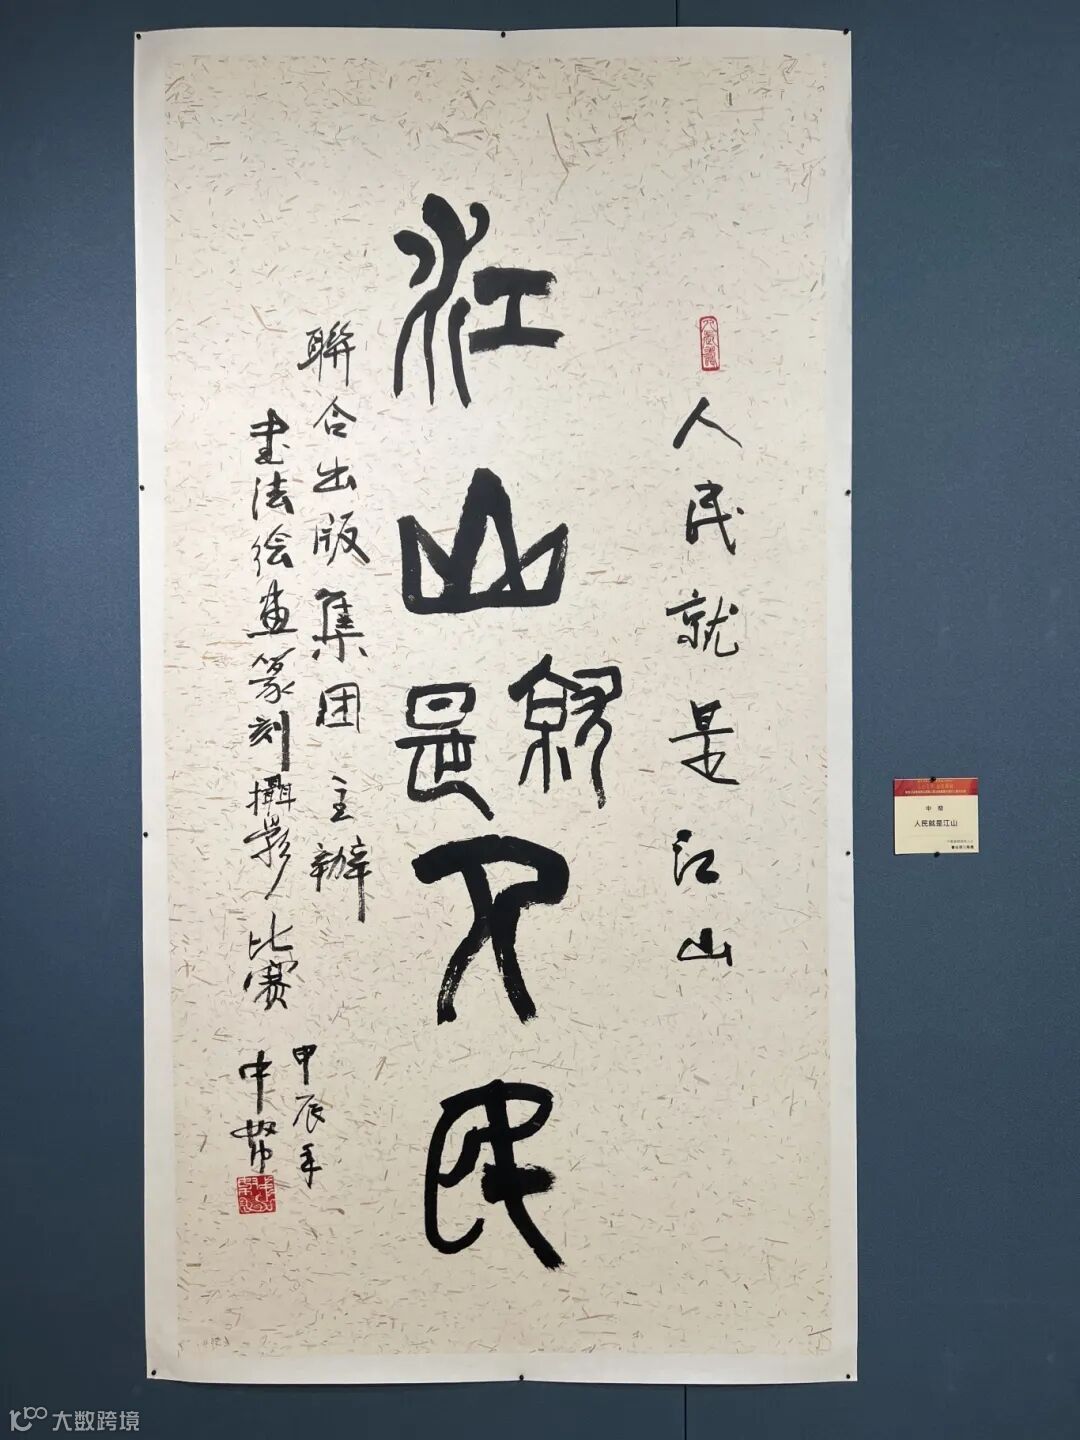 人民就是江山
江山就是人民
聯合出版集团主辦
书法绘画篆刻攝影比赛
甲辰年
中幇
人民就是江山
大数跨境